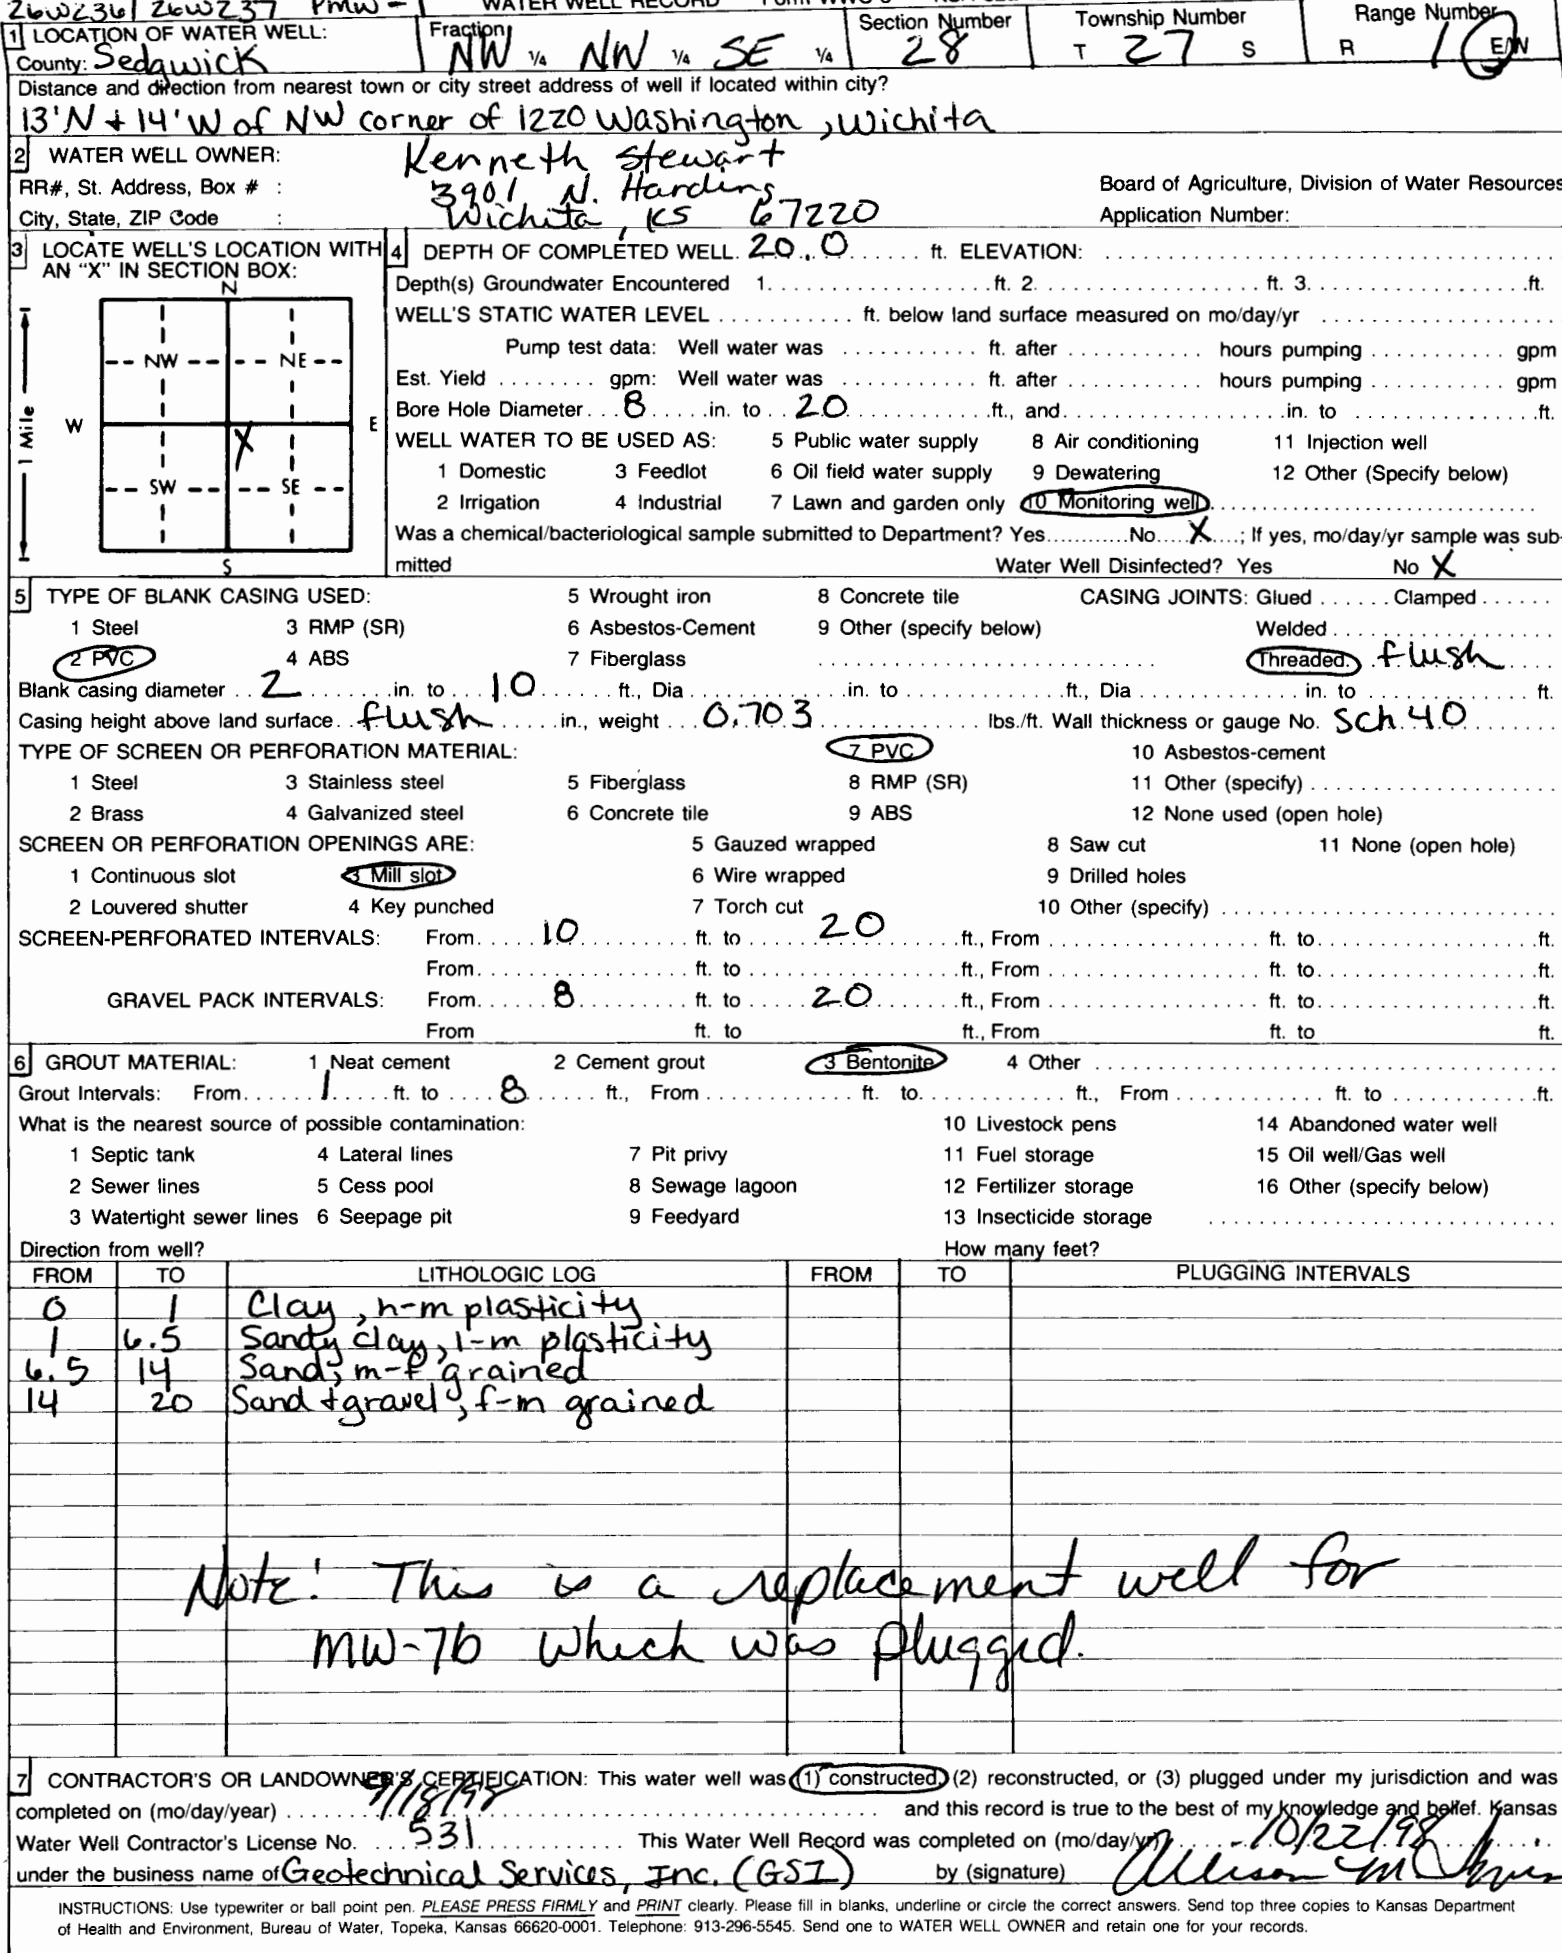 26W236/26W237 PMW- WATER WELL RECORD
1 LOCATION OF WATER WELL: Fraction Section Number Township Number Range Number
County: Sedgwick NW ¼ NW ¼ SE ¼ 28 T 27 S R 1 E/W
Distance and direction from nearest town or city street address of well if located within city?
13'N + 14'W of NW corner of 1220 Washington, Wichita
2 WATER WELL OWNER: Kenneth Stewart
RR#, St. Address, Box # : 3901 N. Harding Board of Agriculture, Division of Water Resources
City, State, ZIP Code : Wichita, KS 67220 Application Number:
3 LOCATE WELL'S LOCATION WITH AN "X" IN SECTION BOX:
N
NW NE
W E
X
SW SE
S
1 Mile
4 DEPTH OF COMPLETED WELL. 20.0 ft. ELEVATION:
Depth(s) Groundwater Encountered 1. ft. 2. ft. 3. ft.
WELL'S STATIC WATER LEVEL ft. below land surface measured on mo/day/yr
Pump test data: Well water was ft. after hours pumping gpm
Est. Yield gpm: Well water was ft. after hours pumping gpm
Bore Hole Diameter 8 in. to 20 ft., and in. to ft.
WELL WATER TO BE USED AS: 5 Public water supply 8 Air conditioning 11 Injection well
1 Domestic 3 Feedlot 6 Oil field water supply 9 Dewatering 12 Other (Specify below)
2 Irrigation 4 Industrial 7 Lawn and garden only 10 Monitoring well
Was a chemical/bacteriological sample submitted to Department? Yes No X ; If yes, mo/day/yr sample was sub-
mitted Water Well Disinfected? Yes No X
5 TYPE OF BLANK CASING USED: 5 Wrought iron 8 Concrete tile CASING JOINTS: Glued Clamped
1 Steel 3 RMP (SR) 6 Asbestos-Cement 9 Other (specify below) Welded
2 PVC 4 ABS 7 Fiberglass Threaded. flush
Blank casing diameter 2 in. to 10 ft., Dia in. to ft., Dia in. to ft.
Casing height above land surface. flush in., weight 0.703 lbs./ft. Wall thickness or gauge No. Sch 40
TYPE OF SCREEN OR PERFORATION MATERIAL: 7 PVC 10 Asbestos-cement
1 Steel 3 Stainless steel 5 Fiberglass 8 RMP (SR) 11 Other (specify)
2 Brass 4 Galvanized steel 6 Concrete tile 9 ABS 12 None used (open hole)
SCREEN OR PERFORATION OPENINGS ARE: 5 Gauzed wrapped 8 Saw cut 11 None (open hole)
1 Continuous slot 3 Mill slot 6 Wire wrapped 9 Drilled holes
2 Louvered shutter 4 Key punched 7 Torch cut 10 Other (specify)
SCREEN-PERFORATED INTERVALS: From 10 ft. to 20 ft., From ft. to ft.
From ft. to ft., From ft. to ft.
GRAVEL PACK INTERVALS: From 8 ft. to 20 ft., From ft. to ft.
From ft. to ft., From ft. to ft.
6 GROUT MATERIAL: 1 Neat cement 2 Cement grout 3 Bentonite 4 Other
Grout Intervals: From 1 ft. to 8 ft., From ft. to ft., From ft. to ft.
What is the nearest source of possible contamination: 10 Livestock pens 14 Abandoned water well
1 Septic tank 4 Lateral lines 7 Pit privy 11 Fuel storage 15 Oil well/Gas well
2 Sewer lines 5 Cess pool 8 Sewage lagoon 12 Fertilizer storage 16 Other (specify below)
3 Watertight sewer lines 6 Seepage pit 9 Feedyard 13 Insecticide storage
Direction from well? How many feet?
FROM TO LITHOLOGIC LOG FROM TO PLUGGING INTERVALS
0 1 Clay, h-m plasticity
1 6.5 Sandy clay, l-m plasticity
6.5 14 Sand, m-f grained
14 20 Sand + gravel, f-m grained
Note: This is a replacement well for
MW-7b which was plugged.
7 CONTRACTOR'S OR LANDOWNER'S CERTIFICATION: This water well was (1) constructed, (2) reconstructed, or (3) plugged under my jurisdiction and was
completed on (mo/day/year) 9/18/98 and this record is true to the best of my knowledge and belief. Kansas
Water Well Contractor's License No. 531 This Water Well Record was completed on (mo/day/yr) 10/22/98
under the business name of Geotechnical Services, Inc. (GSI) by (signature) Allison M
INSTRUCTIONS: Use typewriter or ball point pen. PLEASE PRESS FIRMLY and PRINT clearly. Please fill in blanks, underline or circle the correct answers. Send top three copies to Kansas Department
of Health and Environment, Bureau of Water, Topeka, Kansas 66620-0001. Telephone: 913-296-5545. Send one to WATER WELL OWNER and retain one for your records.